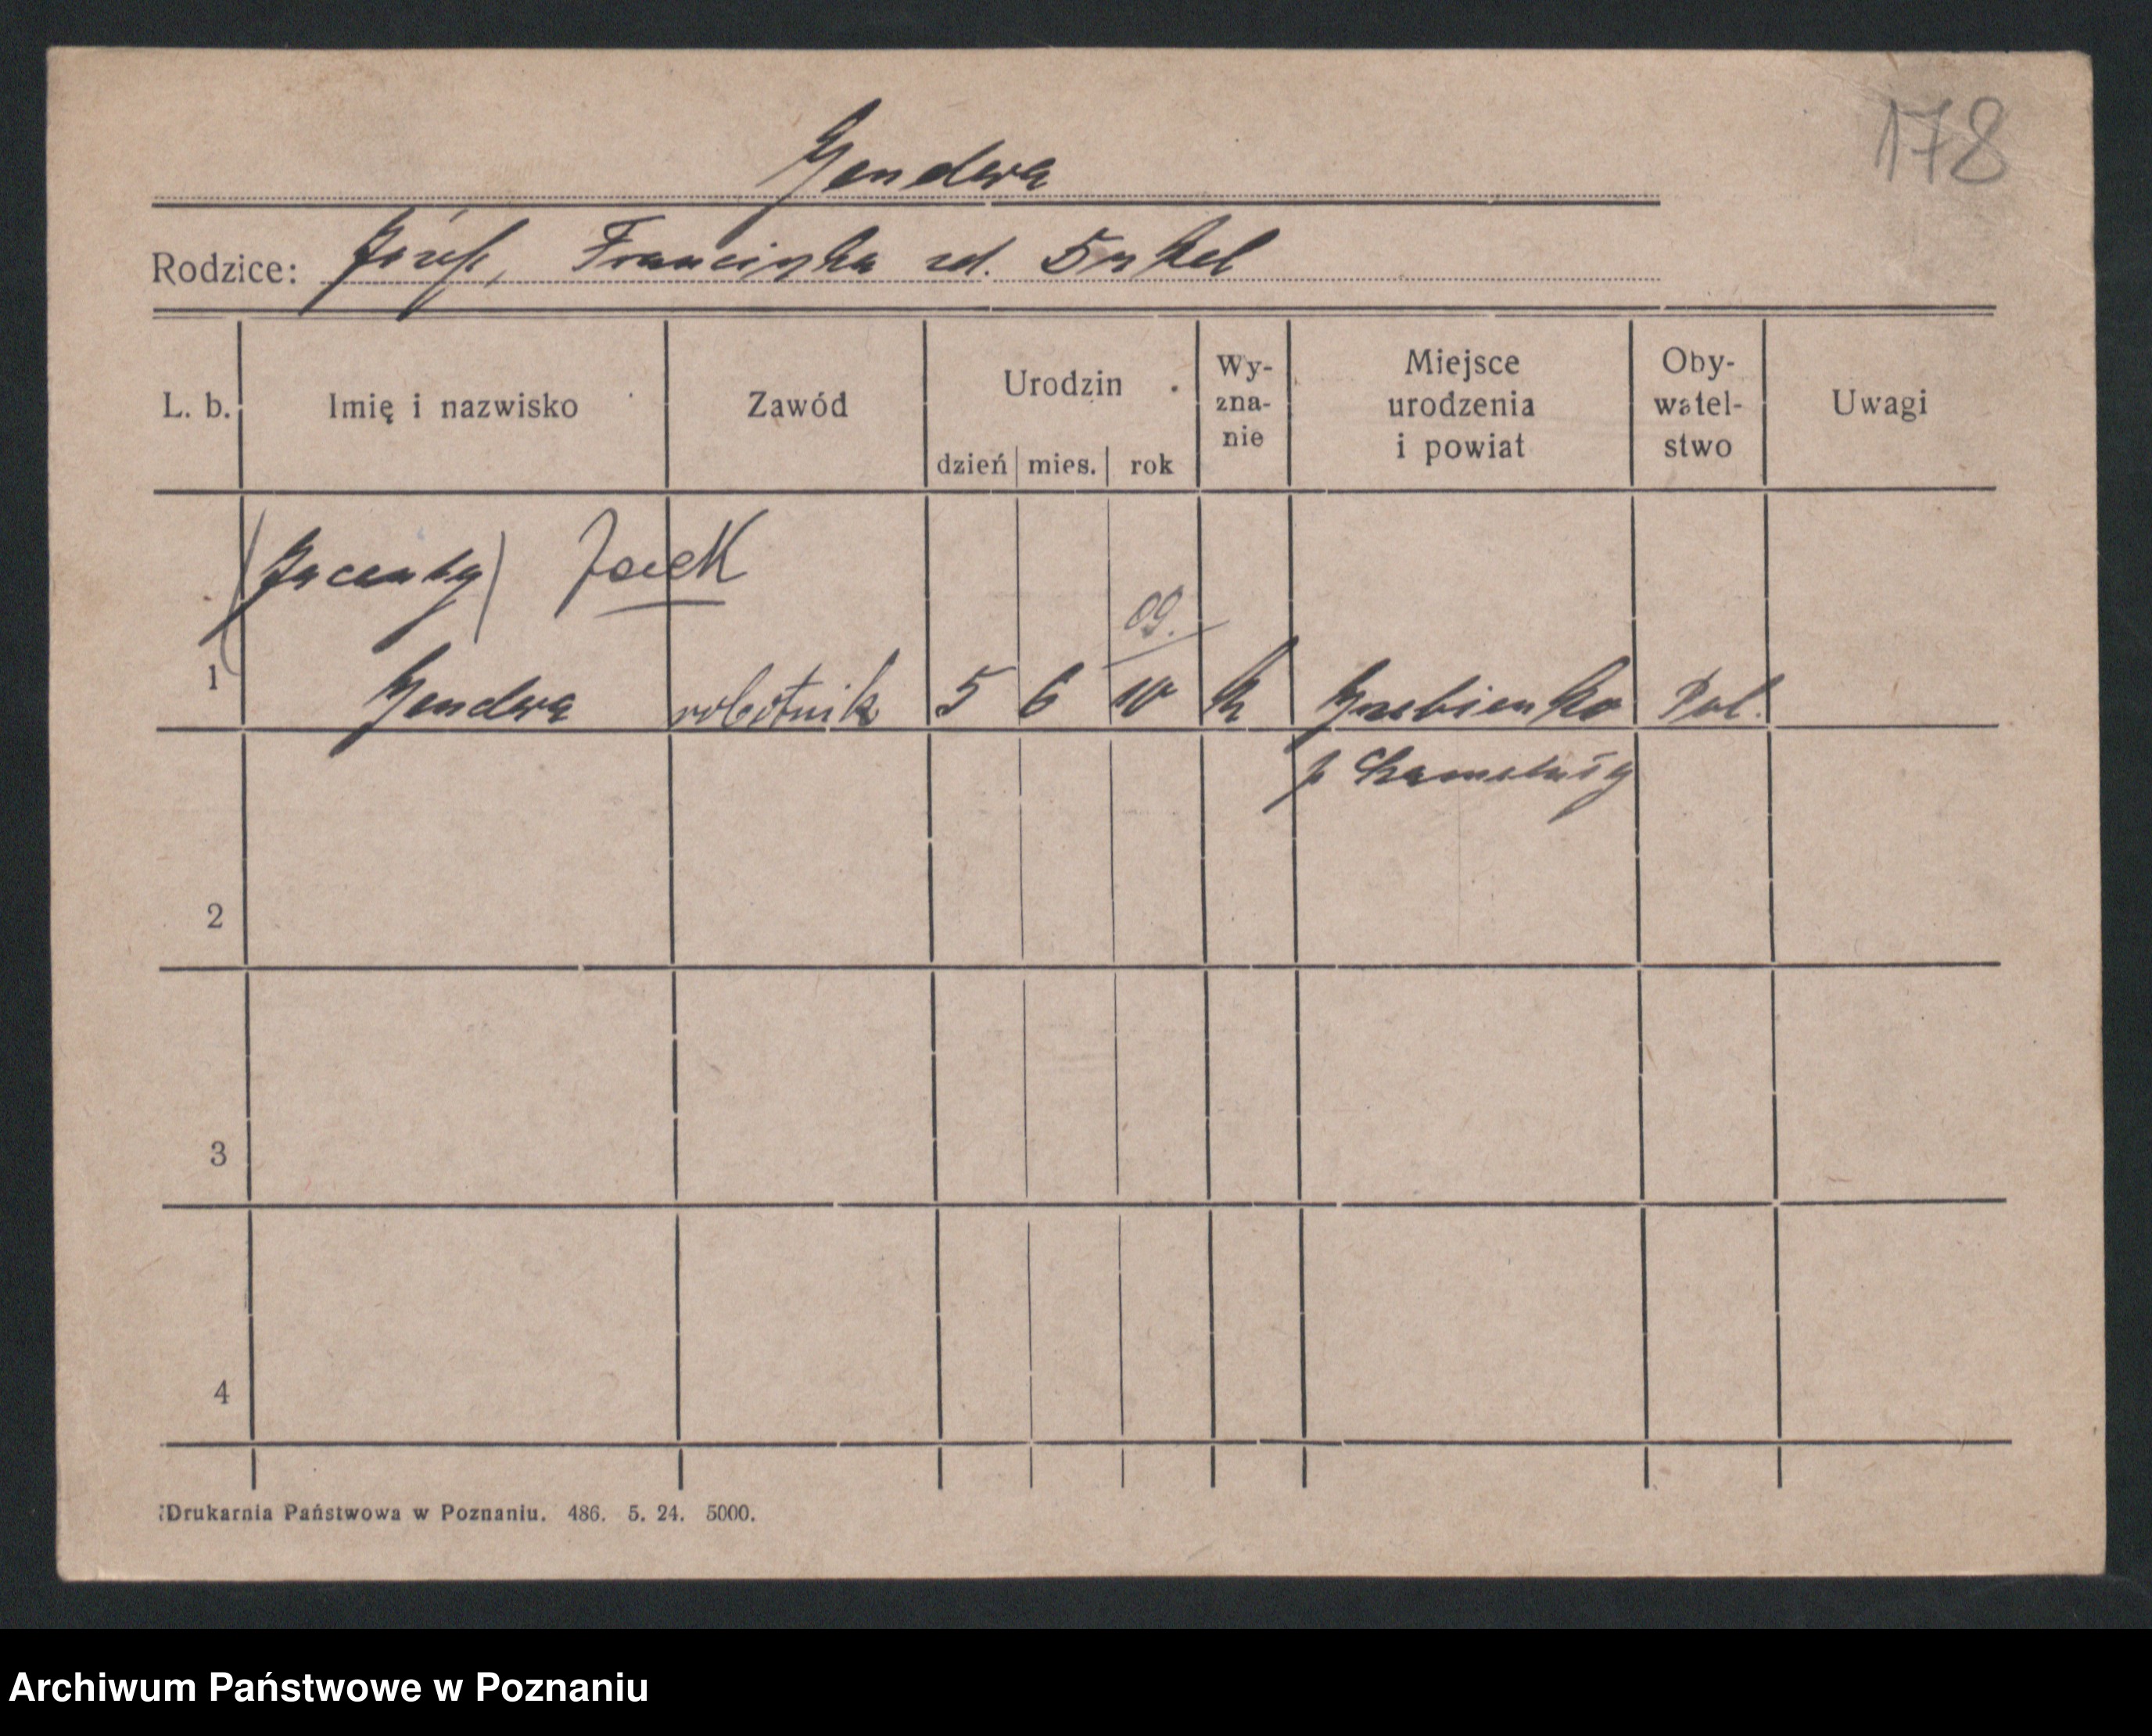 178
Gendera
Rodzice: Józef, Franciszka zd.
L. b. Imię i nazwisko Zawód Urodzin dzień mies. rok Wy-zna-nie Miejsce urodzenia i powiat Oby-watel-stwo Uwagi
(Jacenty) Jacek
09.
1 Gendera robotnik 5 6 10 k Grzebienisko Pol.
p Szamotuły
2
3
4
Drukarnia Państwowa w Poznaniu. 486. 5. 24. 5000.
Archiwum Państwowe w Poznaniu